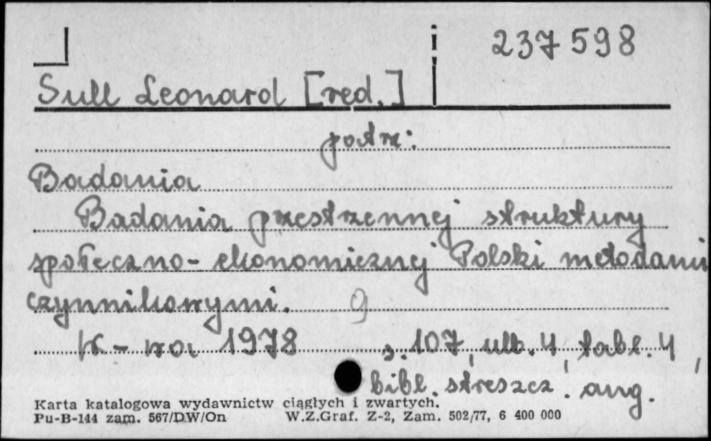 237 598
Sull Leonard [red.]
patrz:
Badania
Badania przestrzennej struktury
społeczno-ekonomicznej Polski metodami
czynnikowymi. 9
W-wa 1978 s. 107, ulb. 4, tabl. 4,
bibl. streszcz. ang.
Karta katalogowa wydawnictw ciągłych i zwartych.
Pu-B-144 zam. 567/DW/On W.Z.Graf. Z-2, Zam. 502/77, 6 400 000